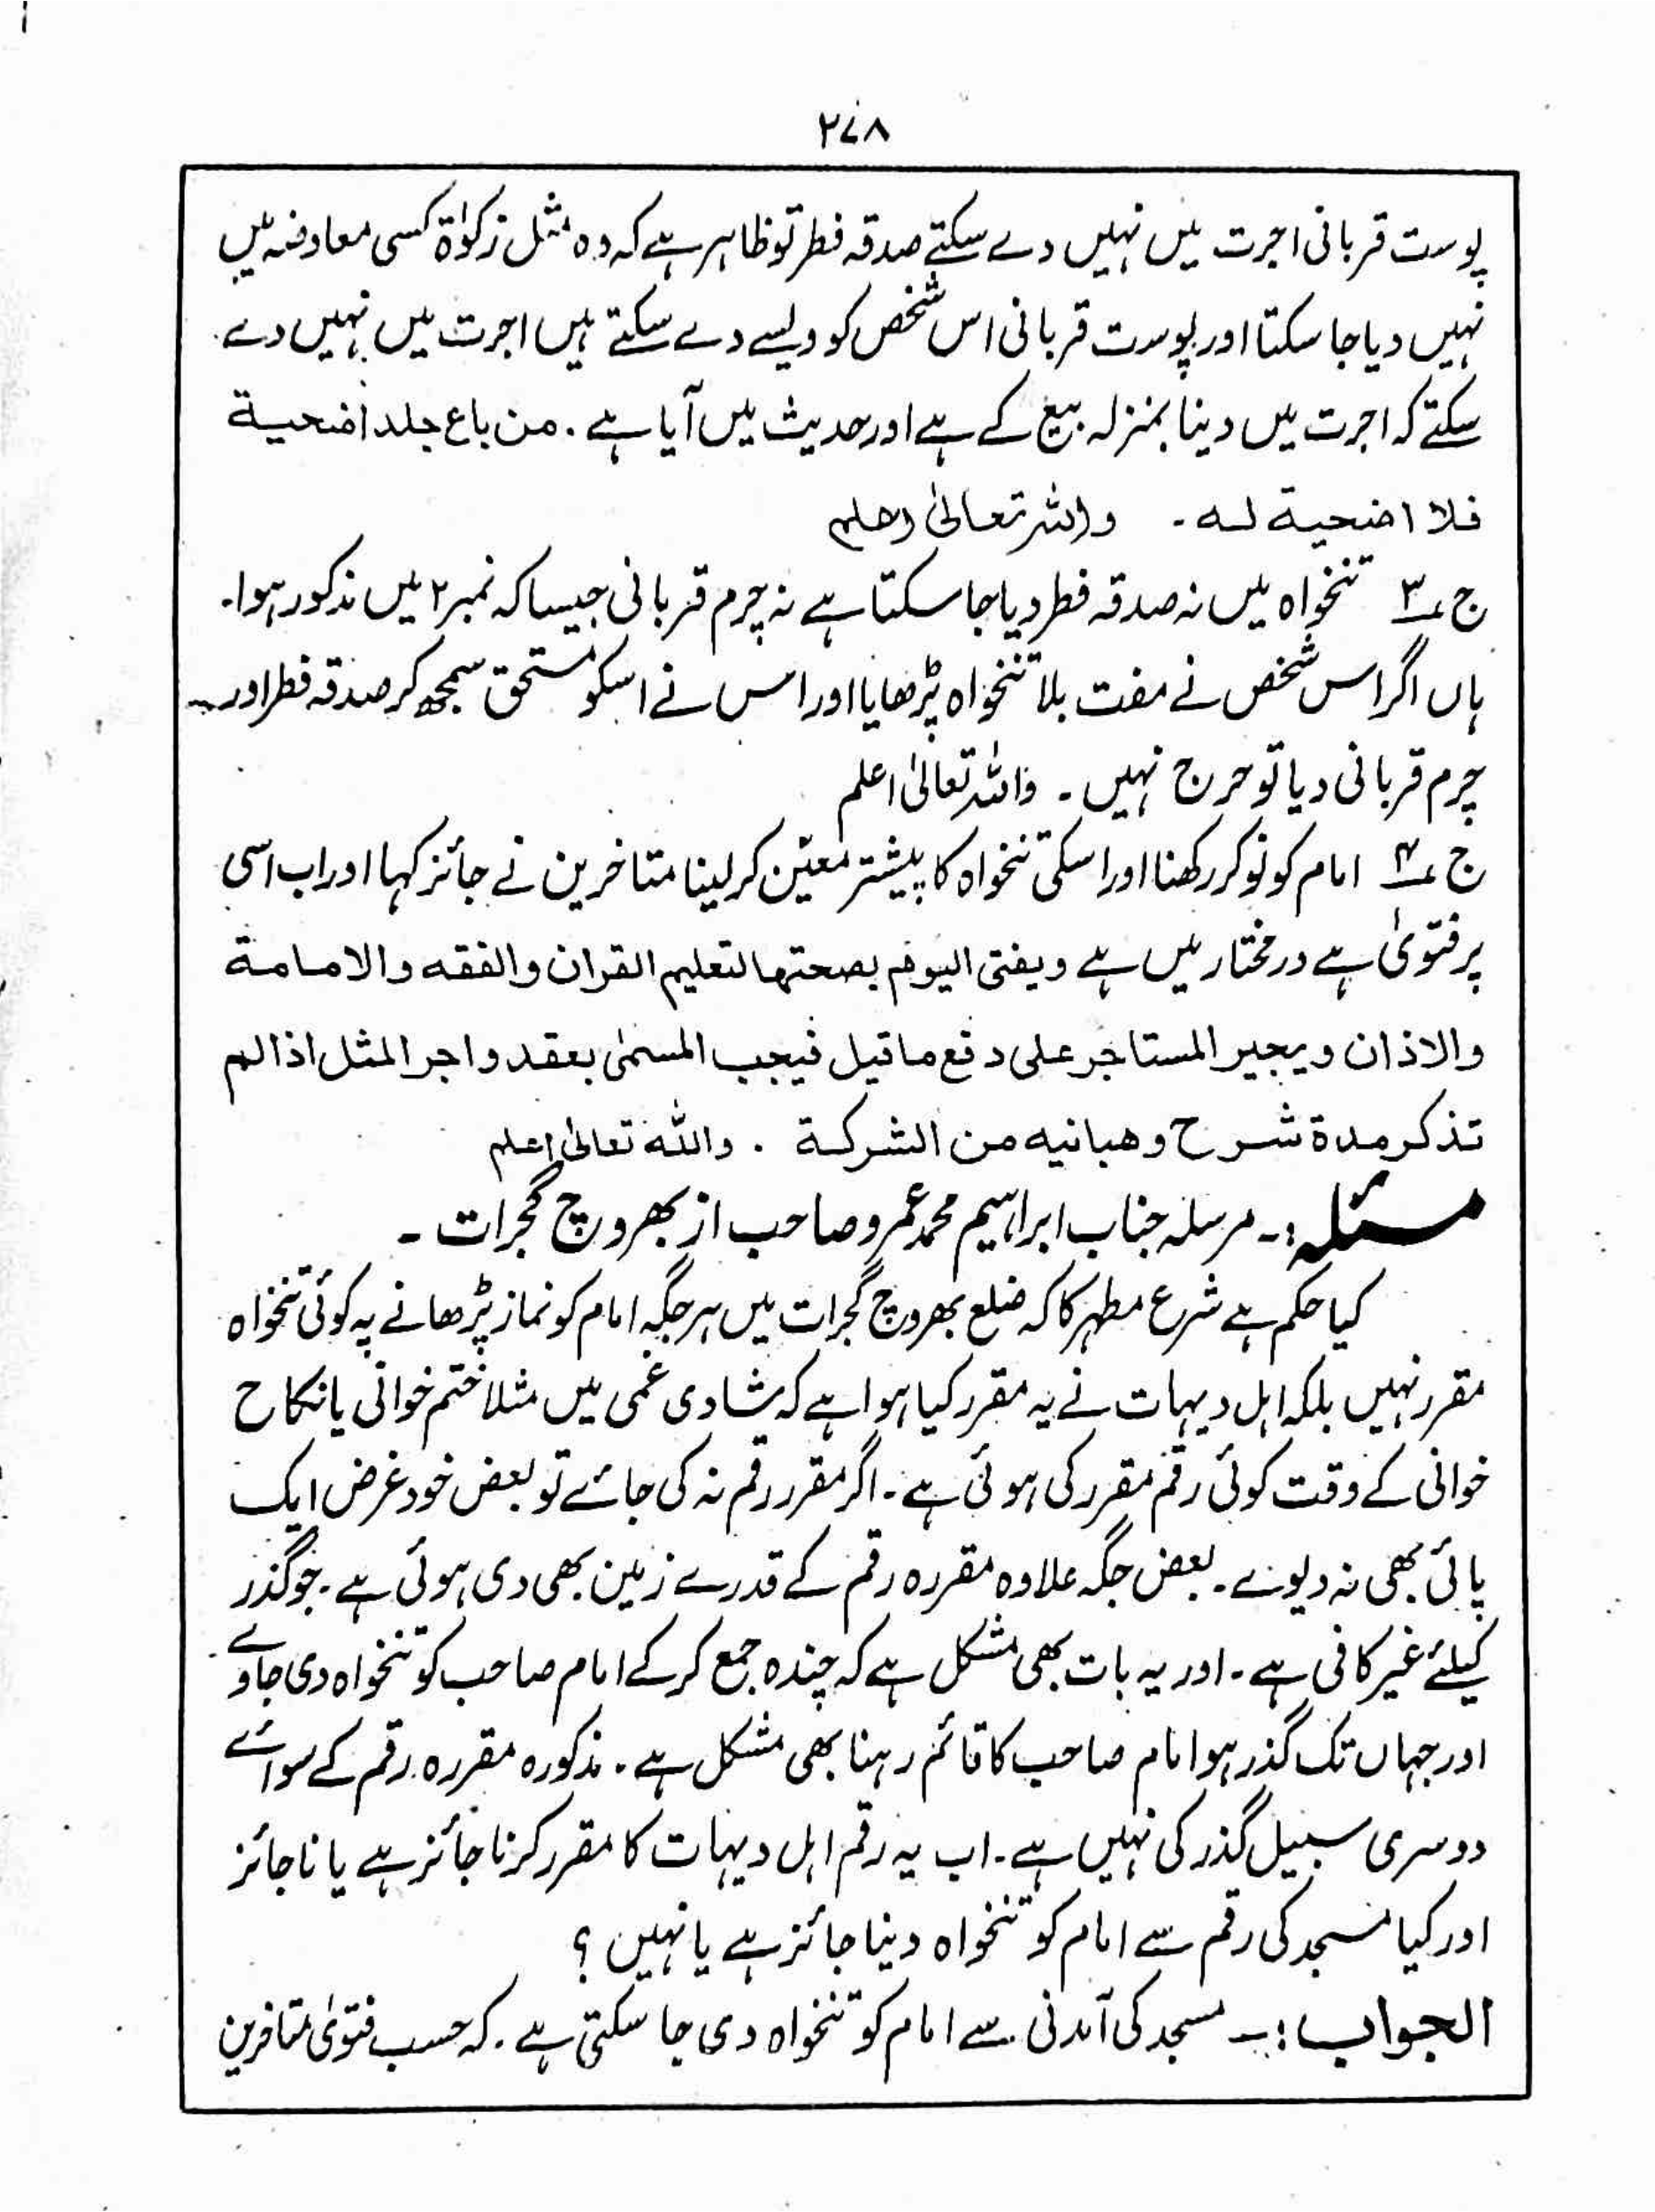 ۲۷۸
پوست قربانی اجرت میں نہیں دے سکتے صدقہ فطر تو ظاہر ہے کہ وہ مثل زکوٰۃ کسی معاوضہ میں
نہیں دیا جا سکتا اور پوست قربانی اس شخص کو ویسے دے سکتے ہیں اجرت میں نہیں دے
سکتے کہ اجرت میں دینا بمنزلہ بیع کے ہے اور حدیث میں آیا ہے ۔ من باع جلد اضحیة
فلا اضحیة لہ ۔ واللہ تعالیٰ اعلم
ج ۳ تنخواہ میں نہ صدقہ فطر دیا جا سکتا ہے نہ چرم قربانی جیسا کہ نمبر ۲ میں مذکور ہوا۔
ہاں اگر اس شخص نے مفت بلا تنخواہ پڑھایا اور اس نے اسکو مستحق سمجھ کر صدقہ فطر اور
چرم قربانی دیا تو حرج نہیں ۔ واللہ تعالیٰ اعلم
ج ۴ امام کو نوکر رکھنا اور اسکی تنخواہ کا پیشتر معیّن کر لینا متاخرین نے جائز کہا اور اب اسی
پر فتویٰ ہے درمختار میں ہے ویفتی الیوم بصحتها لتعلیم القران والفقه والامامة
والاذان ویجبر المستاجر علی دفع ماقیل فیجب المسمیٰ بعقد واجر المثل اذا لم
تذکر مدة شرح وهبانیه من الشرکة ۔ واللہ تعالیٰ اعلم
مسئلہ:۔ مرسلہ جناب ابراہیم محمد عمرو صاحب از بھروچ گجرات ۔
کیا حکم ہے شرع مطہر کا کہ ضلع بھروچ گجرات میں ہر جگہ امام کو نماز پڑھانے پہ کوئی تنخواہ
مقرر نہیں بلکہ اہل دیہات نے یہ مقرر کیا ہوا ہے کہ شادی غمی میں مثلا ختم خوانی یا نکاح
خوانی کے وقت کوئی رقم مقرر کی ہوئی ہے ۔ اگر مقرر رقم نہ کی جائے تو بعض خود غرض ایک
پائی بھی نہ دیوے ۔ بعض جگہ علاوہ مقررہ رقم کے قدرے زمین بھی دی ہوئی ہے ۔ جو گذر
کیلئے غیر کافی ہے ۔ اور یہ بات بھی مشکل ہے کہ چندہ جمع کر کے امام صاحب کو تنخواہ دی جاوے
اور جہاں تک گذر ہو امام صاحب کا قائم رہنا بھی مشکل ہے ۔ مذکورہ مقررہ رقم کے سوائے
دوسری سبیل گذر کی نہیں ہے ۔ اب یہ رقم اہل دیہات کا مقرر کرنا جائز ہے یا ناجائز
اور کیا مسجد کی رقم سے امام کو تنخواہ دینا جائز ہے یا نہیں ؟
الجواب :۔ مسجد کی آمدنی سے امام کو تنخواہ دی جا سکتی ہے ۔ کہ حسب فتویٰ متاخرین